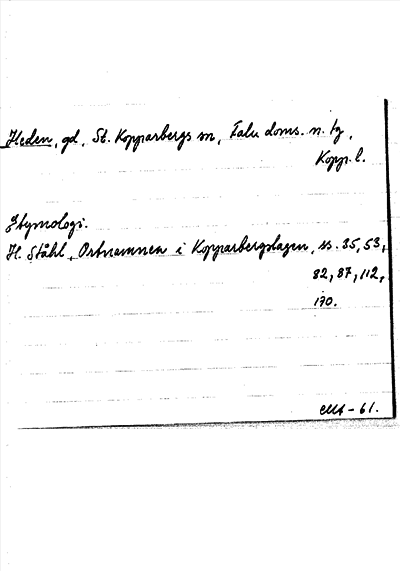 Heden, gd, St. Kopparbergs sn, Falu doms. n. tg,
Kopp. l.
Etymologi.
H. Ståhl, Ortnamnen i Kopparbergslagen, ss. 35, 53,
82, 87, 112,
170.
-61.